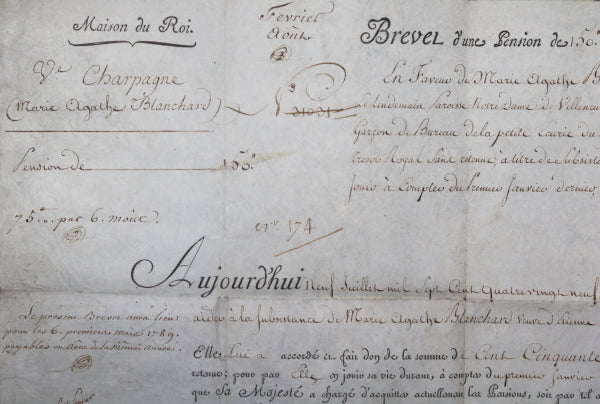 Maison du Roi.
Fevrier
Août
Brevet d'une Pension de 150#
Ve Charpagne
(Marie Agathe Blanchard)
En Faveur de Marie Agathe B
le lendemain Paroisse Notre Dame de Villeneu
Garçon de Bureau de la petite Ecurie du
tresor Royal Sans retenue, a titre de Subsist
Jouir à Compter du Premier Janvier dernier,
Pension de 150#
75# par 6. mois.
n° 174
Aujourd'hui neuf Juillet mil Sept Cent Quatrevingt neuf
aider à la Subsistance de Marie Agathe Blanchard veuve d'Etienne
Le present Brevet aura lieu
pour les 6. premiers mois 1789.
payables en de la même année.
Elle lui a accordé et fait don de la somme de Cent Cinquante
retenue; pour par Elle en jouir sa vie durant, à compter du premier Janvier
que Sa Majesté a chargé d'acquitter actuellement les Pensions, soit par tel a